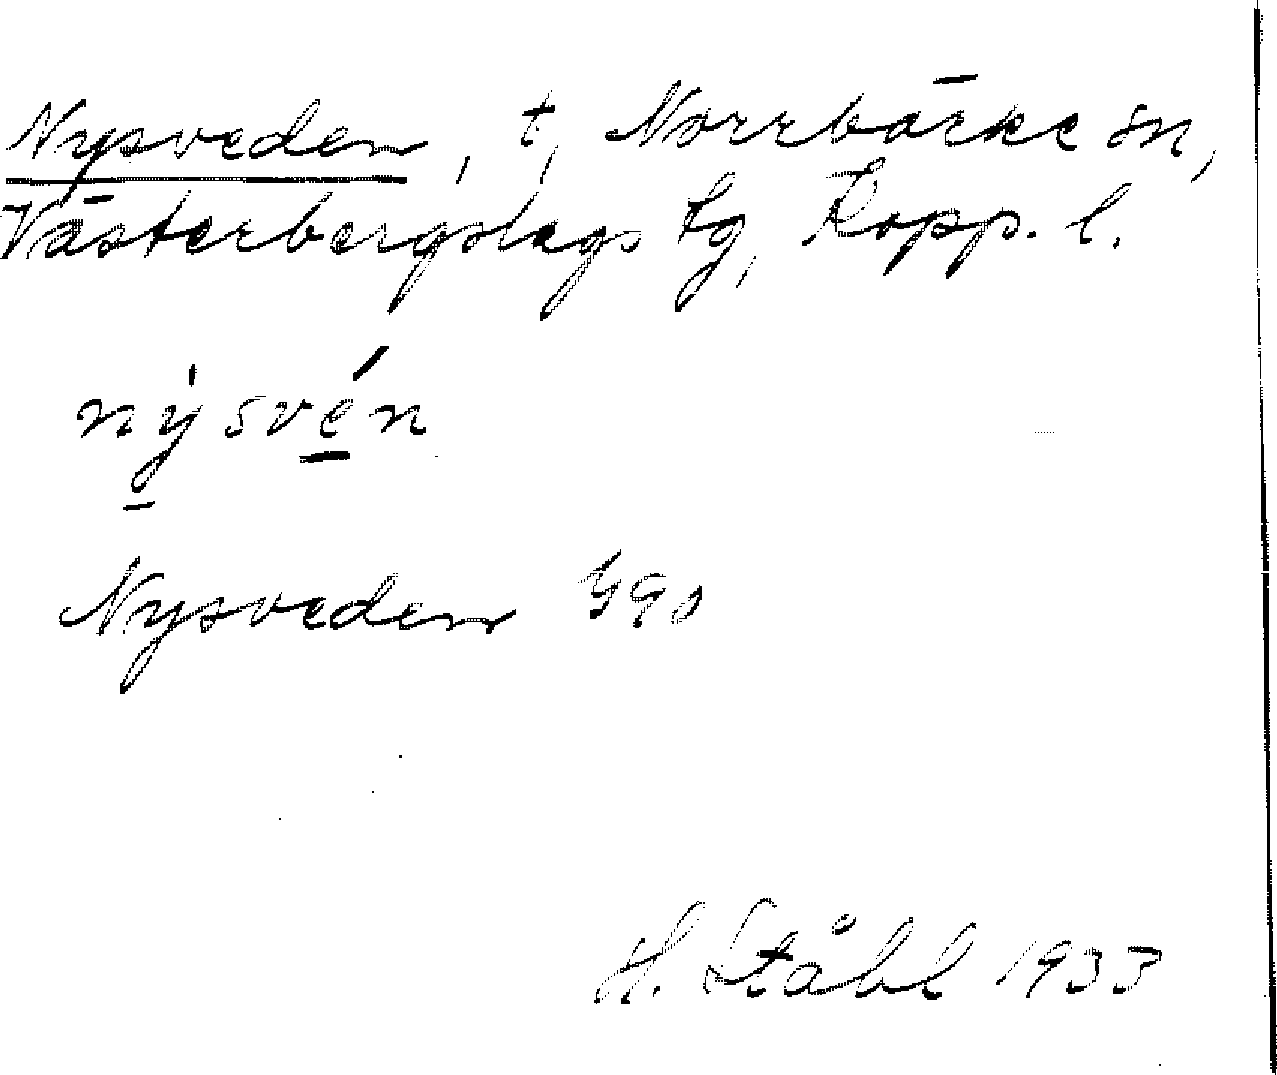 Nysveden, t, Norrbärke sn,
Västerbergslags tg, Kopp. l.
nýsvén
Nysveden
H. Ståhl 1933